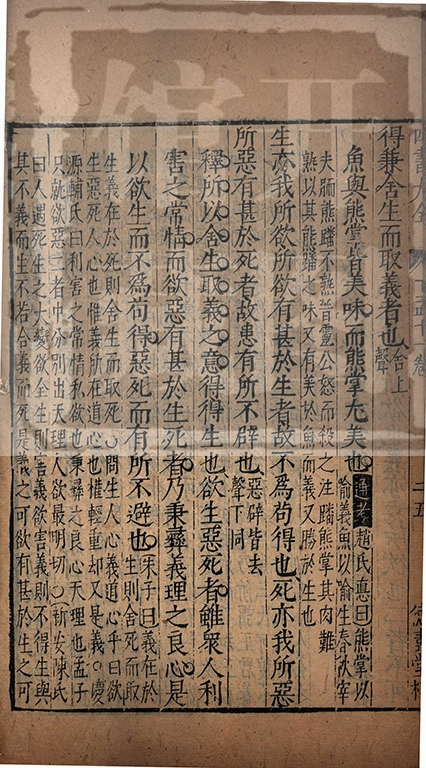 四書大全
二五
得兼舍生而取義者也舍上
聲
魚與熊掌皆美味而熊掌尤美也通考趙氏惪曰熊掌以
喻義魚以喻生春秋宰
夫胹熊蹯不熟晉靈公怒而殺之注蹯熊掌其肉難
熟以其熊蹯之味又有美於魚而義又勝於生也
生亦我所欲所欲有甚於生者故不爲苟得也死亦我所惡
所惡有甚於死者故患有所不辟也惡辟皆去
聲下同
釋所以舍生取義之意得得生也欲生惡死者雖衆人利
害之常情而欲惡有甚於生死者乃秉彝義理之良心是
以欲生而不爲苟得惡死而有所不避也朱子曰義在於
生則舍死而取
生義在於死則舍生而取死○問生人心義道心乎曰欲
生惡死人心也惟義所在道心也權輕重却又是義○慶
源輔氏曰利害之常情私欲也秉彝之良心天理也孟子
只就欲惡二者中分別出天理人欲最明切○新安陳氏
曰人遇死生之大變欲全生則害義欲害義則不得生與
其不義而生不若合義而死是義之可欲有甚於生之可